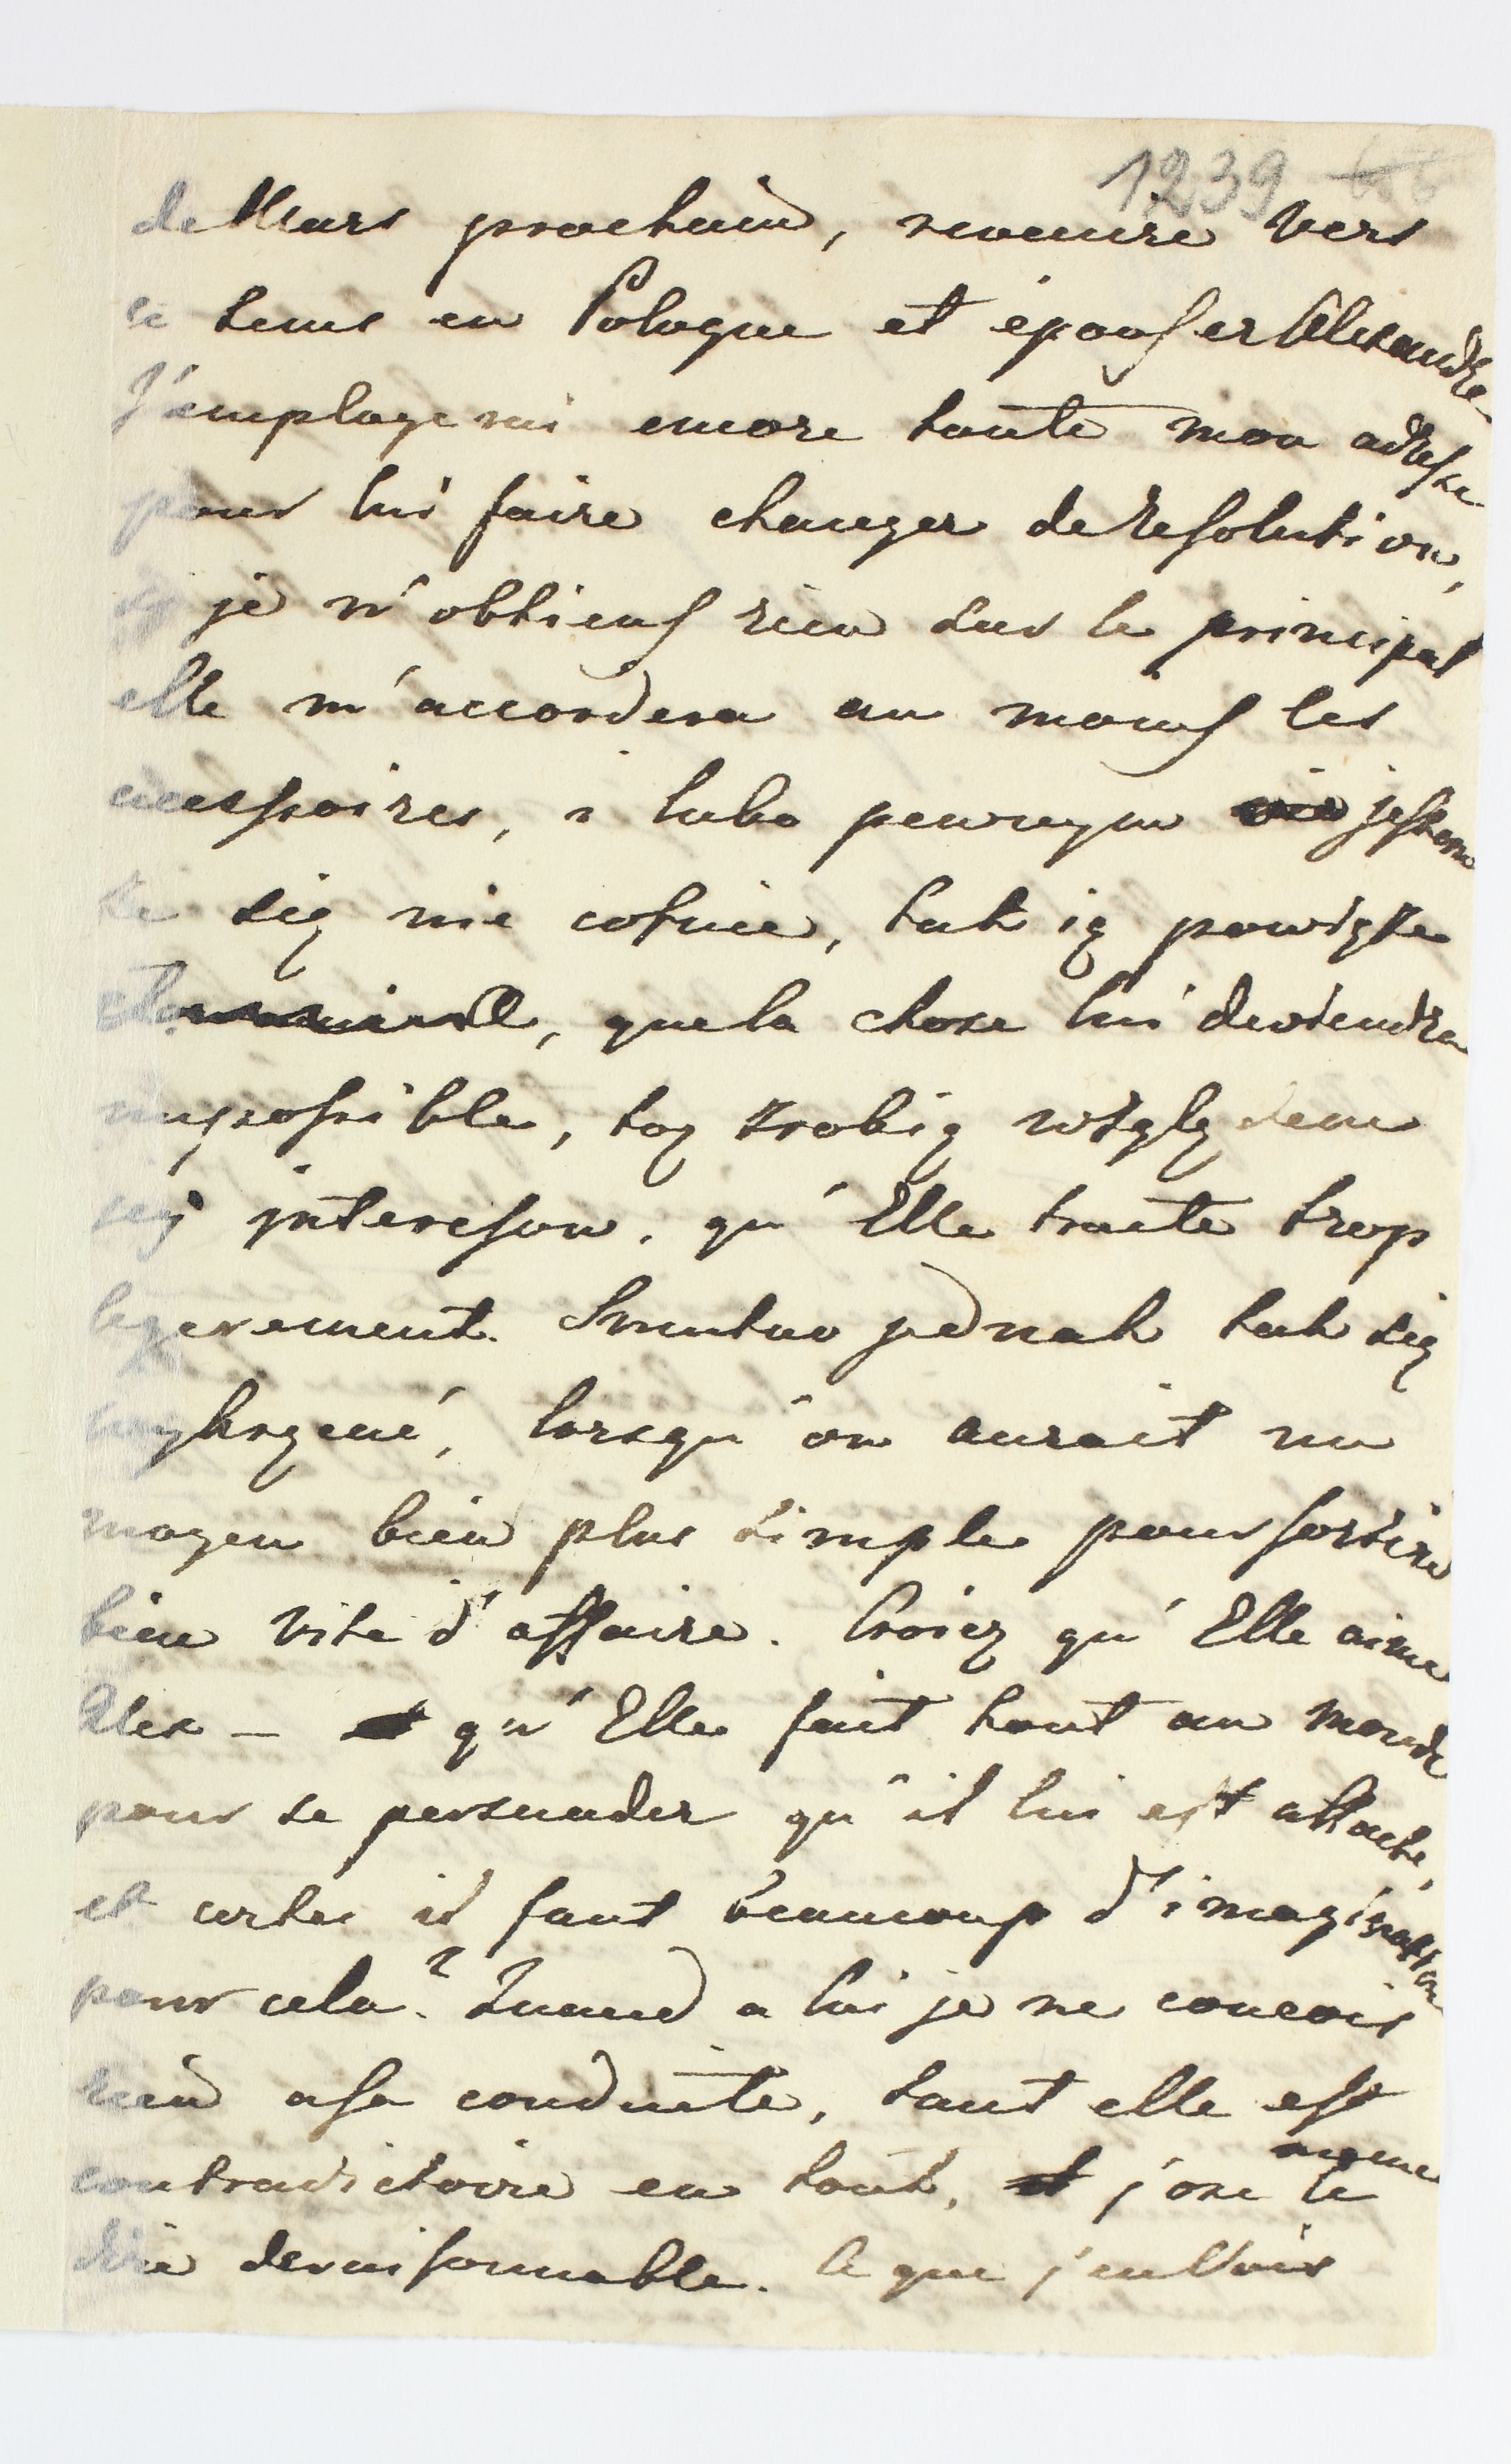 1239
de Mars prochain, revenire vers
ce tems en Pologne et epouser Alexandre.
J'employerai encore toute mon adresse
pour lui faire changer de resolution,
si je n'obtiens rien sur le principal
elle m'accordera au moins les
accessoires, i lubo pewnym jestem
że się nie cofnie, tak ią powiąże
, que la chose lui deviendra
impossible, toż zrobię względem
iey interesow, qu'Elle traite trop
legerement. Smutno jednak tak się
, lorsqu'on aurait un
moyen bien plus simple pour sortire
bien vite d'affaire. Croiez qu'Elle aime
Alex — qu'Elle fait tout au monde
pour se persuader qu'il lui est attaché,
et certes il faut beaucoup d'imagination
pour cela? Quand a lui je ne concois
rien a sa conduite, tant elle est
contradictoire en tout, j'ose meme le
dire deraisonnable. Ce que j'en Vois